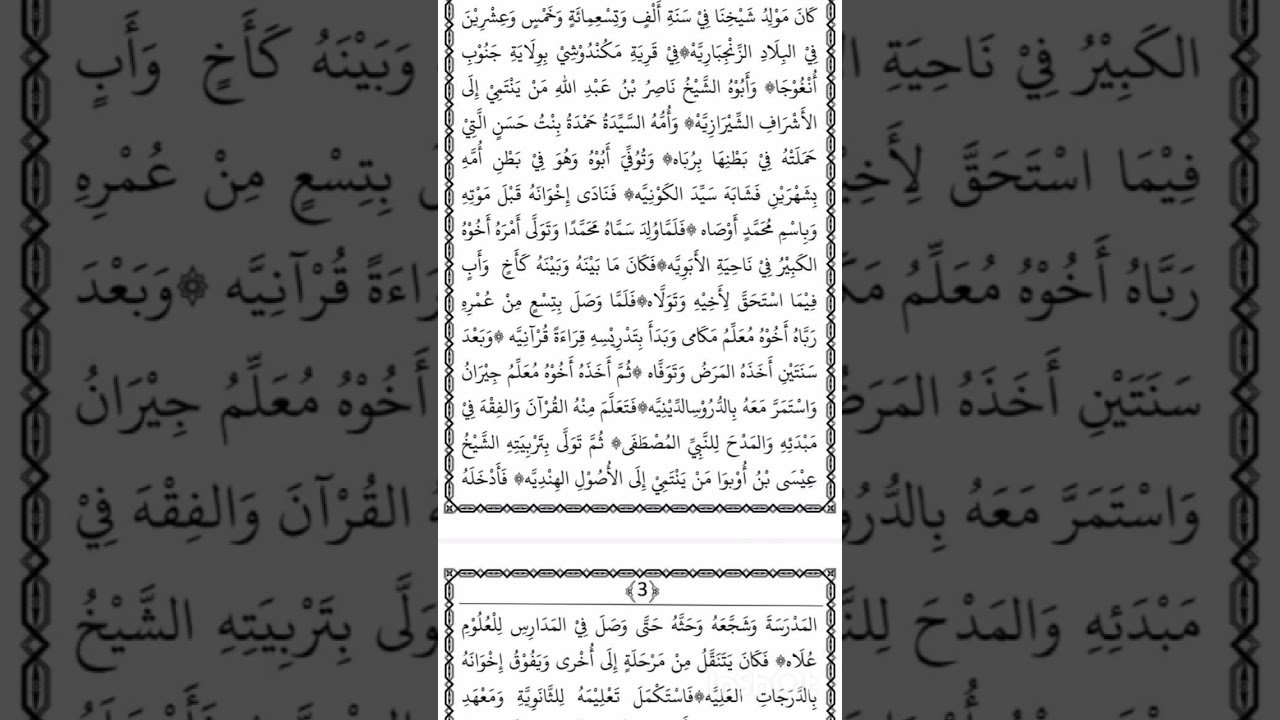 كَانَ مَوْلِدُ شَيْخِنَا فِيْ سَنَةِ أَلْفٍ وَتِسْعِمِائَةٍ وَخَمْسٍ وَعِشْرِيْنَ
فِيْ البِلَادِ الزِّنْجِبَارِيَّهْ۞فِيْ قَرْيَةِ مَكُنْدُوشِيْ بِوِلَايَةِ جَنُوْبِ
أُنْغُوْجَا۞ وَأَبُوْهُ الشَّيْخُ نَاصِرُ بْنُ عَبْدِ اللهِ مَنْ يَنْتَمِيْ إِلَى
الأَشْرَافِ الشِّيْرَازِيَّهْ۞ وَأُمُّهُ السَّيِّدَةُ حَمْدَةُ بِنْتُ حَسَنٍ الَّتِيْ
حَمَلَتْهُ فِيْ بَطْنِهَا بِرُبَاه۞ وَتُوُفِّيَ أَبُوْهُ وَهُوَ فِيْ بَطْنِ أُمِّهِ
بِشَهْرَيْنِ فَشَابَهَ سَيِّدَ الكَوْنِيَّه۞ فَنَادَى إِخْوَانَهُ قَبْلَ مَوْتِهِ
وَبِاسْمِ مُحَمَّدٍ أَوْصَاه ۞فَلَمَّاوُلِدَ سَمَّاهُ مُحَمَّدًا وَتَوَلَّى أَمْرَهُ أَخُوْهُ
الكَبِيْرُ فِيْ نَاحِيَةِ الأَبَوِيَّه۞فَكَانَ مَا بَيْنَهُ وَبَيْنَهُ كَأَخٍ وَأَبٍ
فِيْمَا اسْتَحَقَّ لِأَخِيْهِ وَتَوَلَّاه۞فَلَمَّا وَصَلَ بِتِسْعٍ مِنْ عُمْرِهِ
رَبَّاهُ أَخُوْهُ مُعَلِّمُ مَكَامِى وَبَدَأَ بِتَدْرِيْسِهِ قِرَاءَةً قُرْآنِيَّه ۞وَبَعْدَ
سَنَتَيْنِ أَخَذَهُ المَرَضُ وَتَوَفَّاه ۞ثُمَّ أَخَذَهُ أَخُوْهُ مُعَلِّمُ جِيْرَانُ
وَاسْتَمَرَّ مَعَهُ بِالدُّرُوْسِالدِّيْنِيَّه۞فَتَعَلَّمَ مِنْهُ القُرْآنَ وَالفِقْهَ فِيْ
مَبْدَئِهِ وَالمَدْحَ لِلنَّبِيِّ المُصْطَفَى۞ ثُمَّ تَوَلَّى بِتَرْبِيَتِهِ الشَّيْخُ
عِيْسَى بْنُ أُوْبَوَا مَنْ يَنْتَمِيْ إِلَى الأُصُوْلِ الهِنْدِيَّه۞ فَأَدْخَلَهُ
﴿3﴾
المَدْرَسَةَ وَشَجَّعَهُ وَحَثَّهُ حَتَّى وَصَلَ فِيْ المَدَارِسِ لِلْعُلُوْمِ
عُلَاه۞ فَكَانَ يَتَنَقَّلُ مِنْ مَرْحَلَةٍ إِلَى أُخْرَى وَيَفُوْقُ إِخْوَانَهُ
بِالدَّرَجَاتِ العَلِيَّه۞فَاسْتَكْمَلَ تَعْلِيْمَهُ لِلثَّانَوِيَّةِ وَمَعْهَدِ